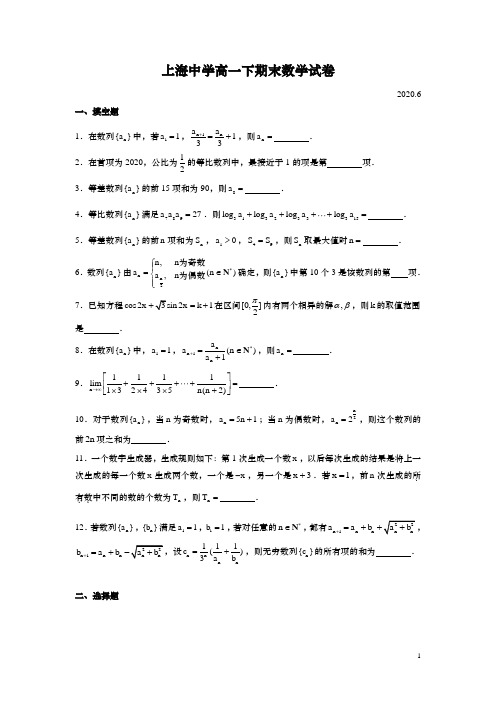 上海中学高一下期末数学试卷
2020.6
一、填空题
1．在数列{a_n}中，若a_1=1，a_{n+1}/3=a_n/3+1，则a_n=______．
2．在首项为2020，公比为1/2的等比数列中，最接近于1的项是第______项．
3．等差数列{a_n}的前15项和为90，则a_8=______．
4．等比数列{a_n}满足
5．等差数列{a_n}的前n项和为S_n，a_1>0，S_4=S_9，则S_n取最大值时n=______．
6．数列{a_n}由a_n={n, n为奇数; a_{n/2}, n为偶数 (n∈N*)确定，则{a_n}中第10个3是该数列的第____项．
7．已知方程cos2x+√3sin2x=k+1在区间[0,π/2]内有两个相异的解α,β，则k的取值范围
是______．
8．在数列{a_n}中，a_1=1，a_{n+1}=a_n/(a_n+1)(n∈N*)，则a_n=______．
9．lim_{n→∞}[1/(1×3)+1/(2×4)+1/(3×5)+⋯+1/(n(n+2))]=______．
10．对于数列{a_n}，当n为奇数时，a_n=5n+1；当n为偶数时，a_n=2^{n/2}，则这个数列的
前2n项之和为______．
11．一个数字生成器，生成规则如下：第1次生成一个数x，以后每次生成的结果是将上一
次生成的每一个数x生成两个数，一个是-x，另一个是x+3．若x=1，前n次生成的所
有数中不同的数的个数为T_n，则T_n=______．
12．若数列{a_n}，{b_n}满足a_1=1，b_1=1，若对任意的n∈N*，都有a_{n+1}=a_n+b_n+√(a_n²+b_n²)，
b_{n+1}=a_n+b_n-√(a_n²+b_n²)，设c_n=1/3^n(1/a_n+1/b_n)，则无穷数列{c_n}的所有项的和为______．
二、选择题
1